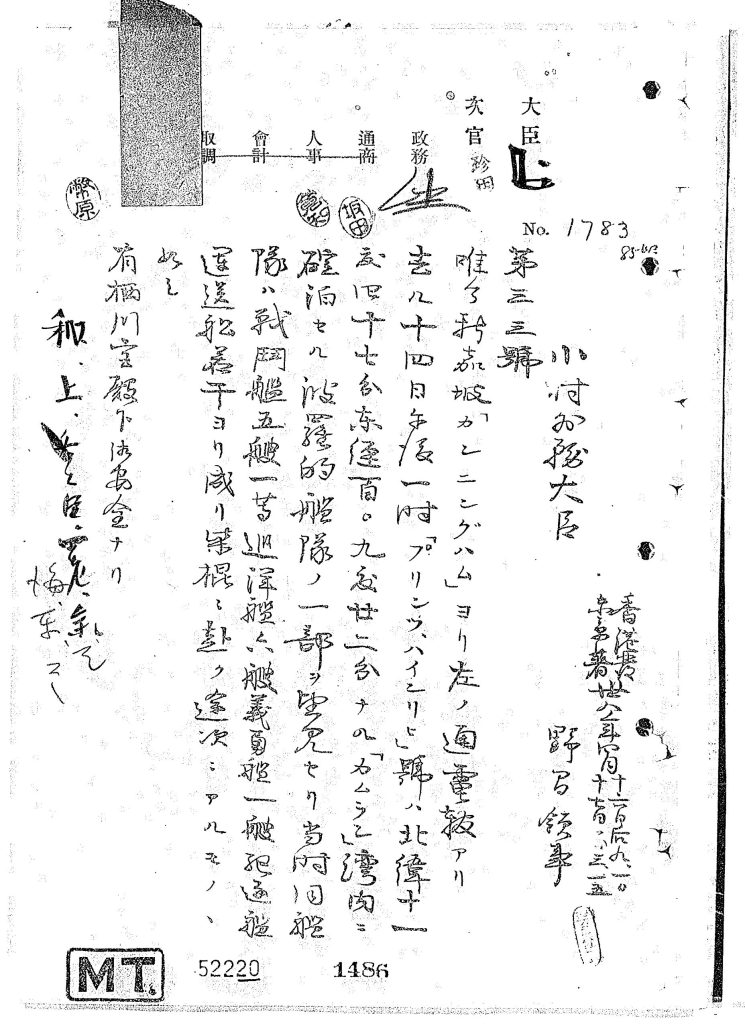 大臣
次官
珍田
政務
通商
人事
會計
取調
坂田
幣原
No. 1783
香港發
東京著
小村外務大臣
野間領事
第三三號
唯今新嘉坡「カンニングハム」ヨリ左ノ通電報アリ
去ル十四日午後一時「プリンツ、ハインリヒ」號ハ北緯十一
度四十七分東經百〇九度廿二分ナル「カムラン」灣内ニ
碇泊セル波羅的艦隊ノ一部ヲ望見セリ当時同艦
隊ハ戰鬥艦五艘一等巡洋艦六艘義勇艦一艘駆逐艦
運送船若干ヨリ成リ
赴ク途次ニアルモノヽ
如シ
有栖川宮殿下御安全ナリ
MT
52220
1486